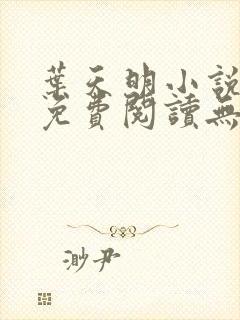 葉天明小說
免費閱讀無
渺尹